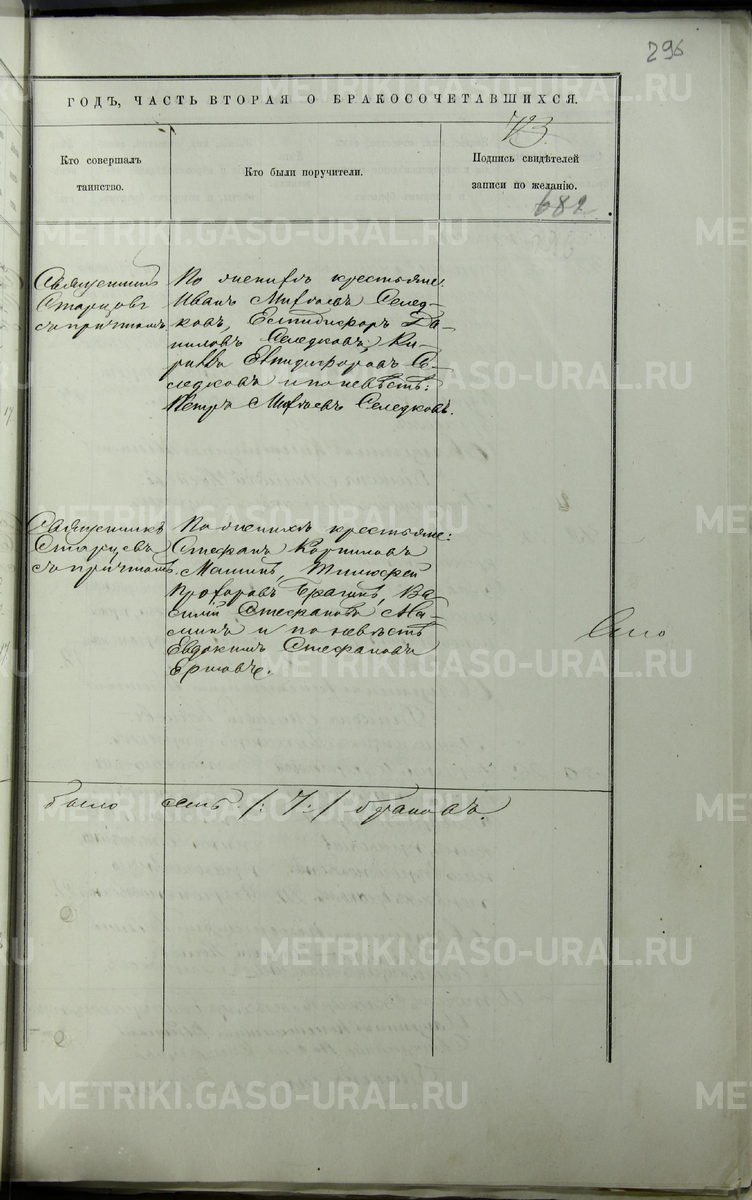 296
ГОДЪ, ЧАСТЬ ВТОРАЯ О БРАКОСОЧЕТАВШИХСЯ.
73.
Кто совершалъ таинство.
Кто были поручители.
Подпись свидѣтелей записи по желанію.
682
Священникъ
Старцовъ
съ причтомъ
По женихѣ крестьяне:
Иванъ
Селед-
ковъ, Да-
ниловъ Селедковъ, Ки-
Се-
ледковъ и по невѣстѣ:
Петръ Селедковъ.
Священникъ
Старцевъ
съ причтомъ.
По женихѣ крестьяне:
Стефанъ Корниловъ
Прохоровъ Брагинъ, Ва-
силій Стефановъ Ма-
и по невѣстѣ
Евдокимъ Стефановъ
Ершовъ.
было семь /: 7 :/ браковъ.
METRIKI.GASO-URAL.RU